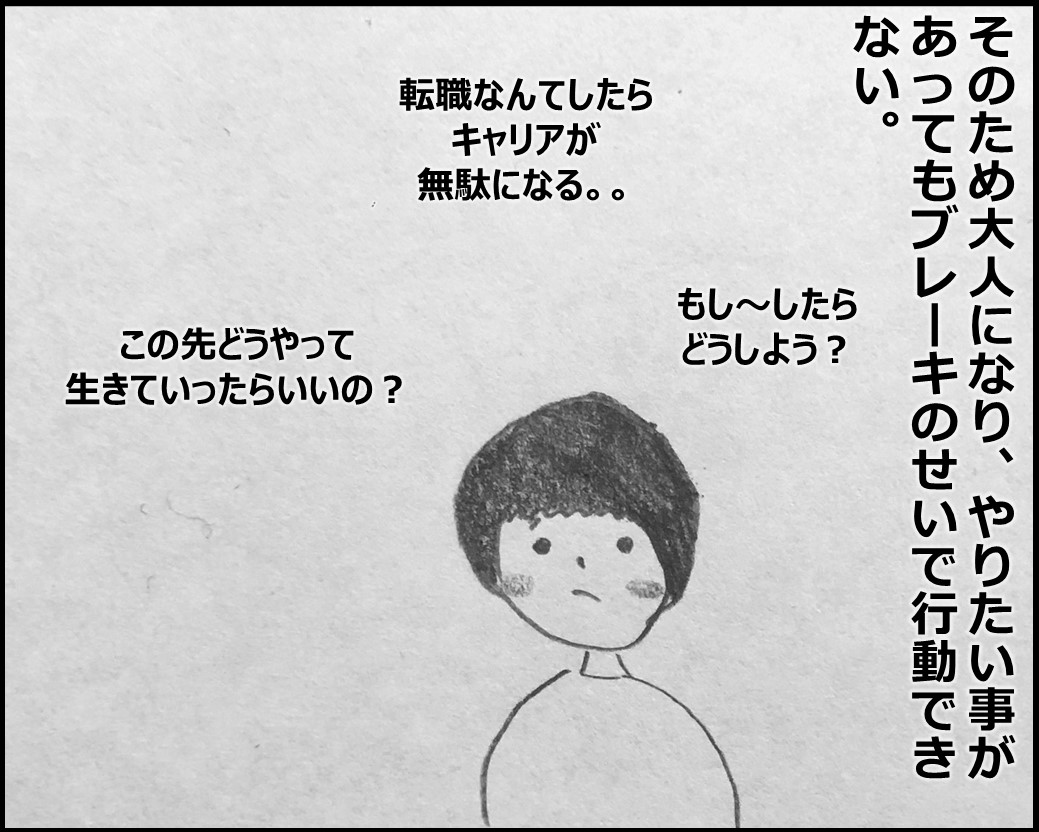 そのため大人になり、やりたい事が
あってもブレーキのせいで行動でき
ない。
転職なんてしたら
キャリアが
無駄になる。。
もし〜したら
どうしよう？
この先どうやって
生きていったらいいの？